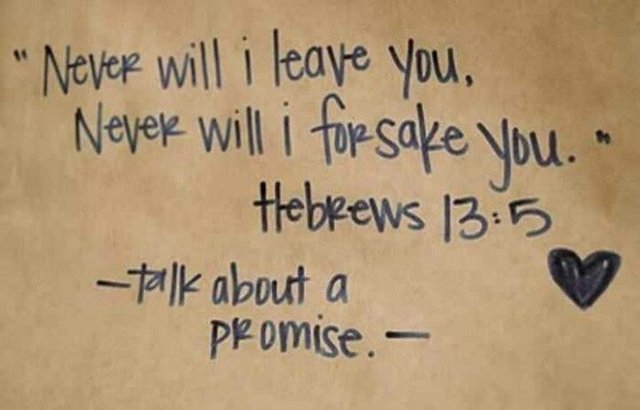 "Never will i leave you.
Never will i forsake you."
Hebrews 13:5
-talk about a
promise.-